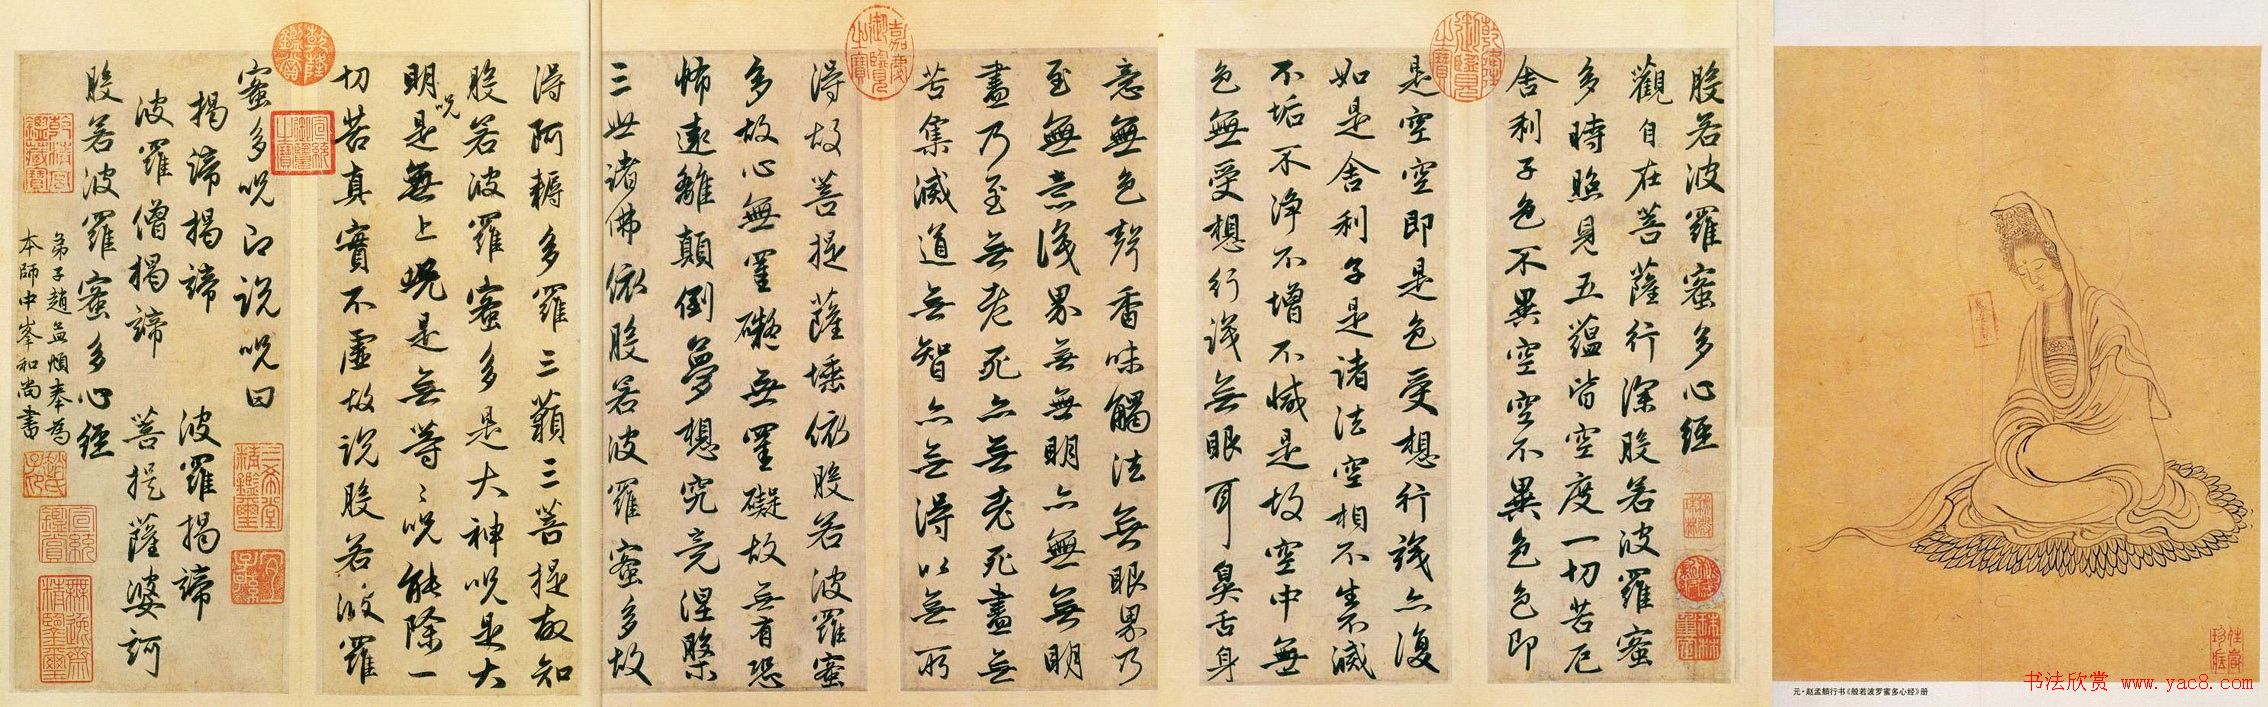 般若波羅蜜多心經
觀自在菩薩行深般若波羅蜜
多時照見五蘊皆空度一切苦厄
舍利子色不異空空不異色色即
是空空即是色受想行識亦復
如是舍利子是諸法空相不生不滅
不垢不淨不增不減是故空中無
色無受想行識無眼耳鼻舌身
意無色聲香味觸法無眼界乃
至無意識界無無明亦無無明
盡乃至無老死亦無老死盡無
苦集滅道無智亦無得以無所
得故菩提薩埵依般若波羅蜜
多故心無罣礙無罣礙故無有恐
怖遠離顛倒夢想究竟涅槃
三世諸佛依般若波羅蜜多故
得阿耨多羅三藐三菩提故知
般若波羅蜜多是大神呪是大
明呪是無上呪是無等〻呪能除一
切苦真實不虛故說般若波羅
蜜多呪即說呪曰
揭諦揭諦 波羅揭諦
波羅僧揭諦 菩提薩婆訶
般若波羅蜜多心經
弟子趙孟頫奉為
本師中峯和尚書
乾隆御覽之寶
嘉慶御覽之寶
乾隆鑑賞
宣統御覽之寶
秘殿新編
珠林重定
三希堂精鑑璽
宜子孫
乾清宮鑑藏寶
趙氏子昂
宣統鑑賞
無逸齋精鑑璽
元·赵孟頫行书《般若波罗蜜多心经》册
书法欣赏 www.yac8.com